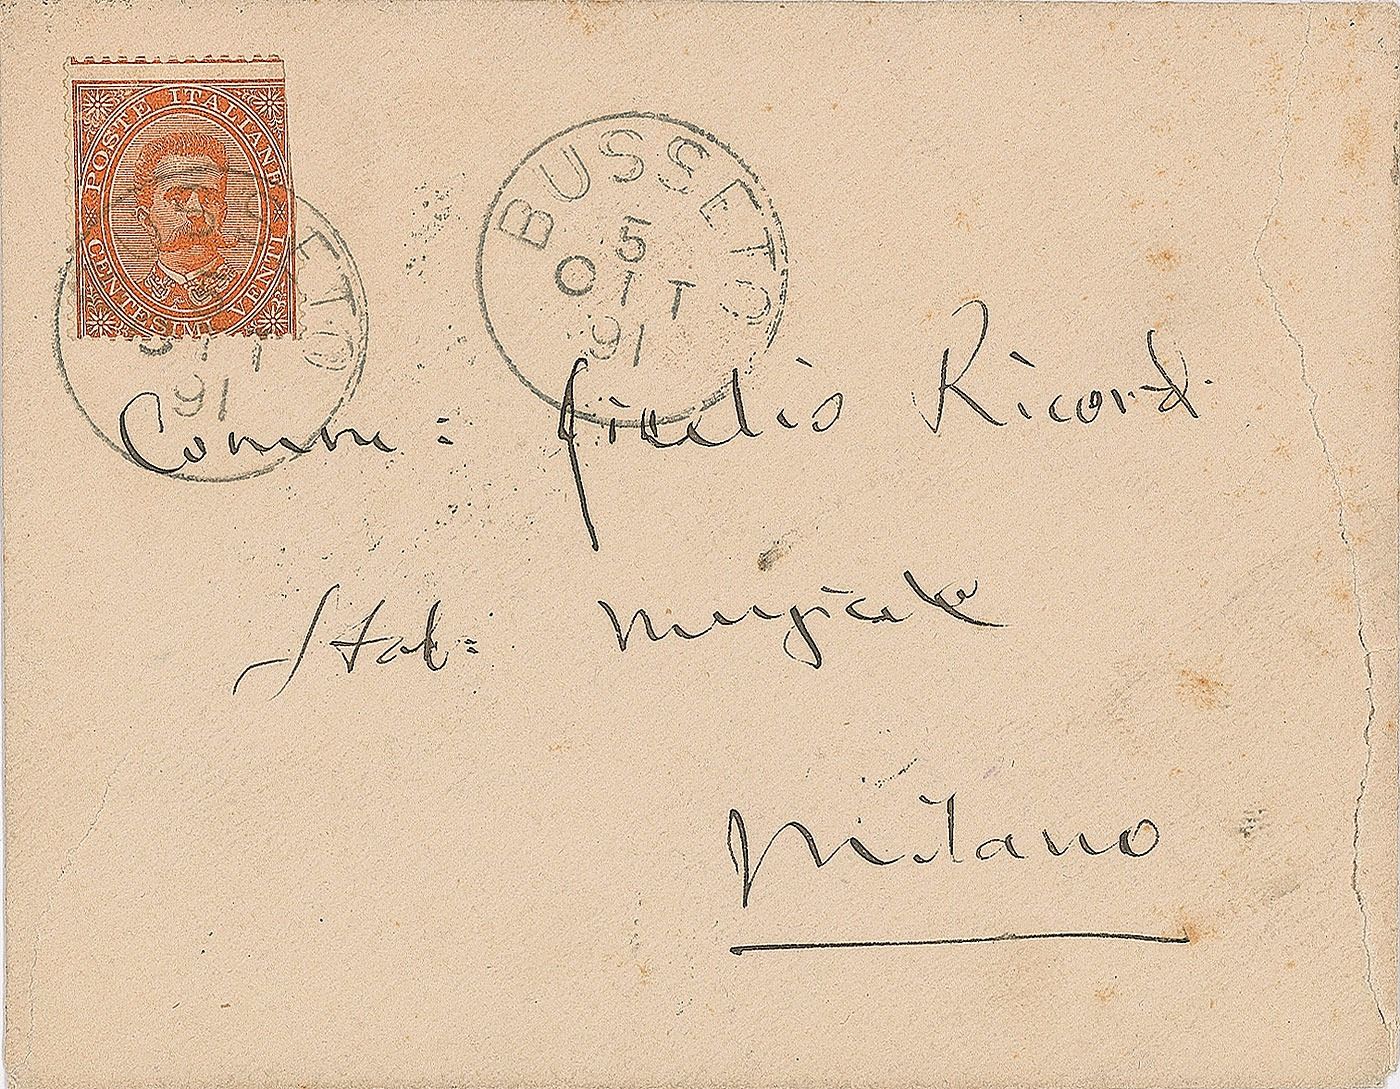 POSTE ITALIANE
CENTESIMI VENTI
ETO
91
BUSSETO
5
OTT
91
Comm: Giulio Ricordi
Stab: Musicale
Milano